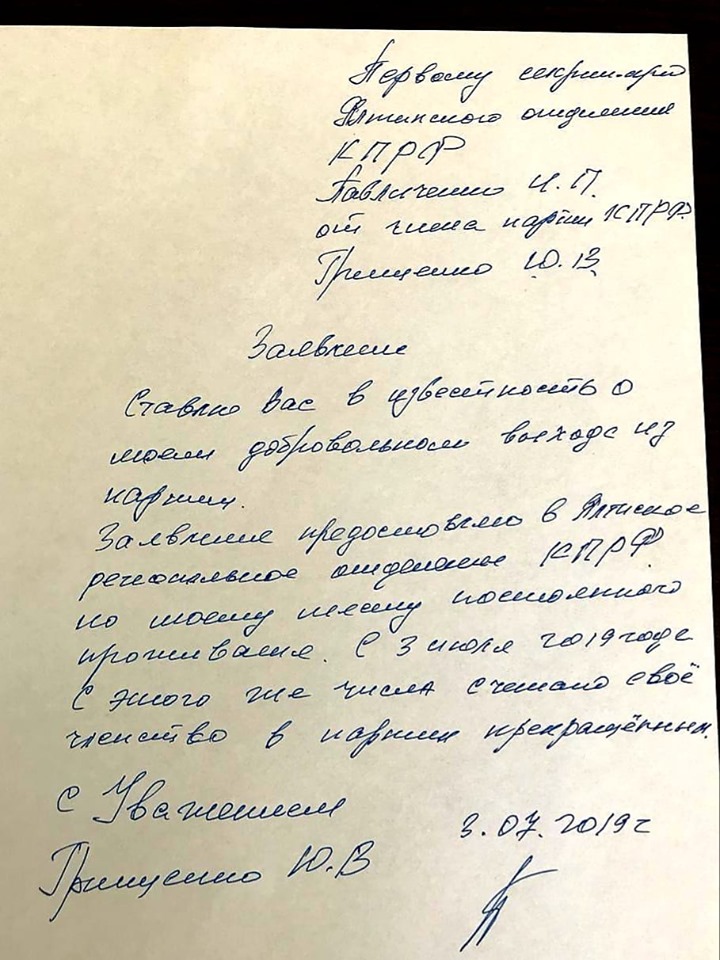 Первому секритарю
Ялтинского отделения
КПРФ
Павличенко И.П.
от члена партии КПРФ.
Грищенко Ю.В.
Заявление
Ставлю Вас в известность о
моем добровольном выходе из
партии.
Заявление предоставлено в Ялтиское
региональное отделение КПРФ
по моему месту постоянного
проживания. С 3 июля 2019 года
С этого же числа считаю своё
членство в партии прекращённым.
С Уважением
3.07.2019г
Грищенко Ю.В